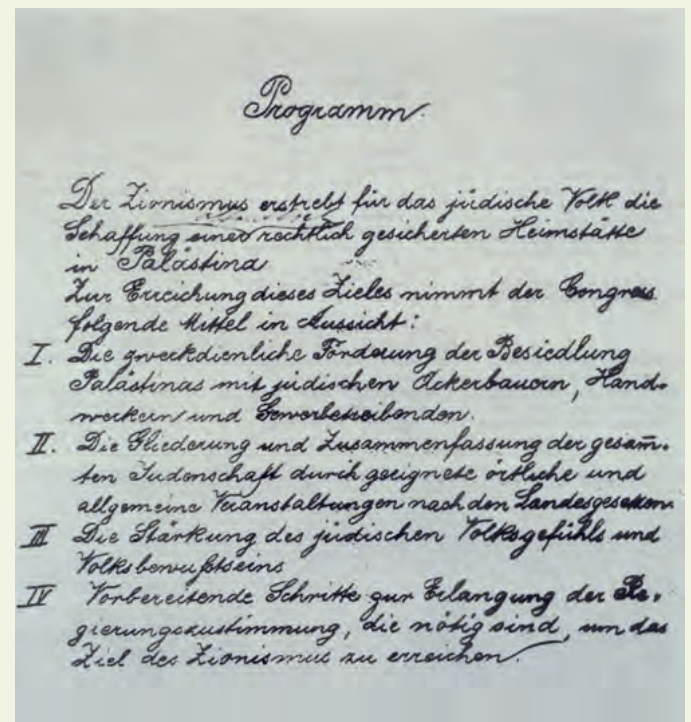 Programm.
Der Zionismus erstrebt für das jüdische Volk die
Schaffung einer rechtlich gesicherten Heimstätte
in Palästina
Zur Erreichung dieses Zieles nimmt der Congress
folgende Mittel in Aussicht:
I. Die zweckdienliche Förderung der Besiedlung
Palästinas mit jüdischen Ackerbauern, Hand-
werkern und Gewerbetreibenden.
II. Die Gliederung und Zusammenfassung der gesam̄-
ten Judenschaft durch geeignete örtliche und
allgemeine Veranstaltungen nach den Landesgesetzen.
III Die Stärkung des jüdischen Volksgefühls und
Volksbewußtseins
IV Vorbereitende Schritte zur Erlangung der Re-
gierungszustimmung, die nötig sind, um das
Ziel des Zionismus zu erreichen.